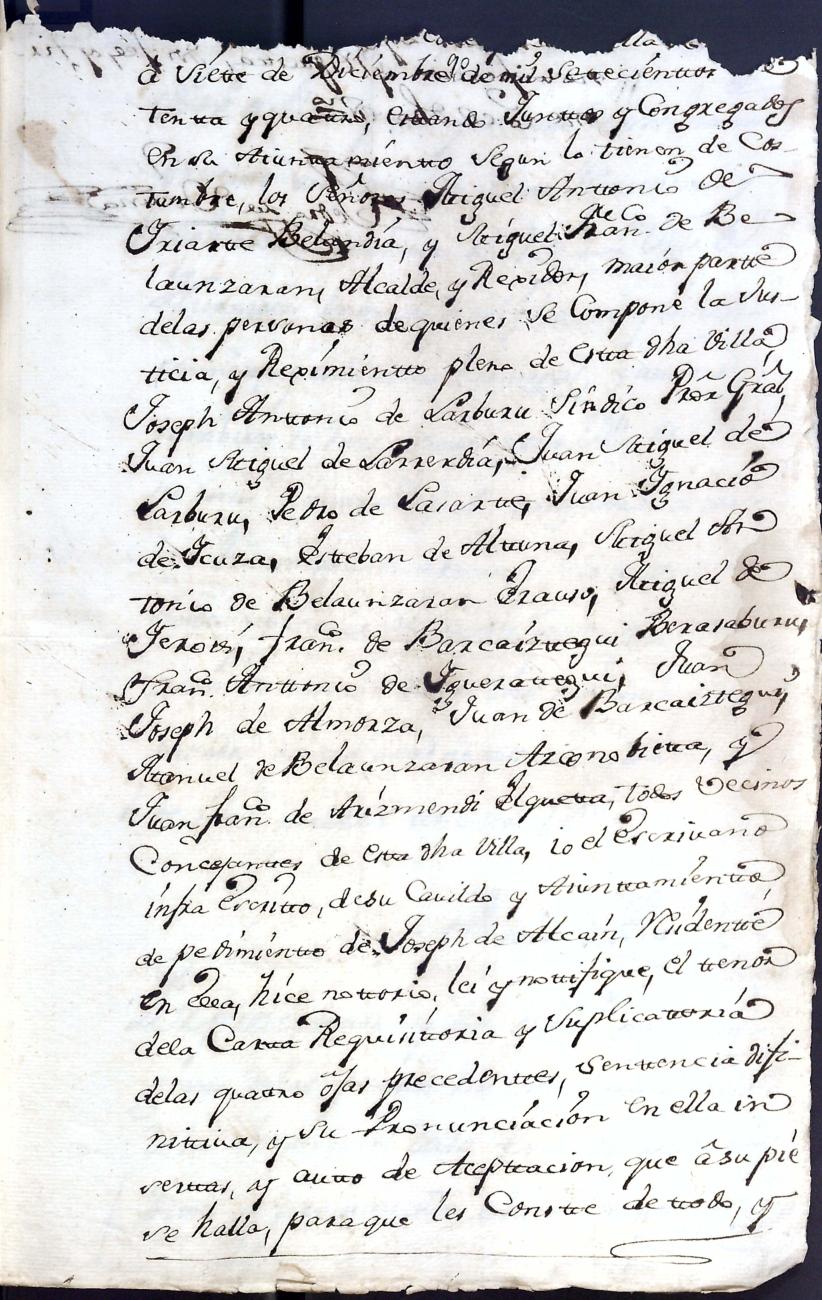 villa
a Siette de Diciembre de mil settecienttos
tentta y quattro, esttando Junttos y Congregados
en su Aiunttamientto segun lo tienen de Cos-
tumbre, los Señores Miguel Anttonio de
Iriarte Belandia, y Miguel Franco. de Be
launzaran, Alcalde, y Rexidor, maior partte
delas personas de quienes se Compone la Jus-
ticia, y Reximientto pleno de estta dha Villa,
Joseph Anttonio de Larburu Sindico Pror Gral,
Juan Miguel de Larrerdia, Juan Miguel de
Larburu, Pedro de Lasartte, Juan Ignacio
de Icuza, Esteban de Alttuna, Miguel An
tonio de Belaunzaran Erauso, Miguel de
Jeroni, franco. de Barcaizttegui Berasaburu,
fran. Anttonio de Iguerattegui, Juan
Joseph de Almorza, Juan de Barcaiztegui,
Manuel de Belaunzaran Arconobietta, y
Juan franco. de Arizmendi Elguetta, todos Vecinos
Concejanttes de estta dha Villa, io el Escrivano
infra escritto, desu Cavildo y Aiunttamientto,
de pedimientto de Joseph de Alcain, Residentte
en ella, hice nottorio, lei y nottifique, el tenor
dela Cartta Requisittoria y Suplicattoria
delas quattro ojas precedenttes, senttencia difi-
nittiva, y su Pronunciacion en ella in
serttas, y autto de Acepttacion, que â su pie
se halla, paraque les Constte de ttodo, y